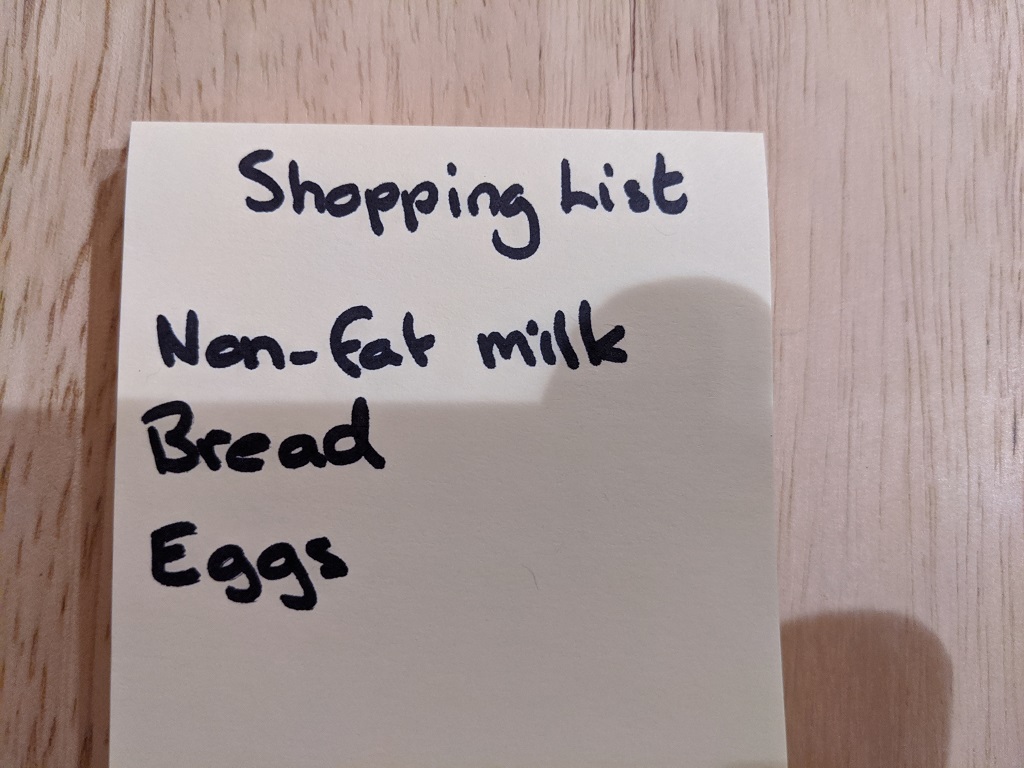 Shopping List
Non-fat milk
Bread
Eggs